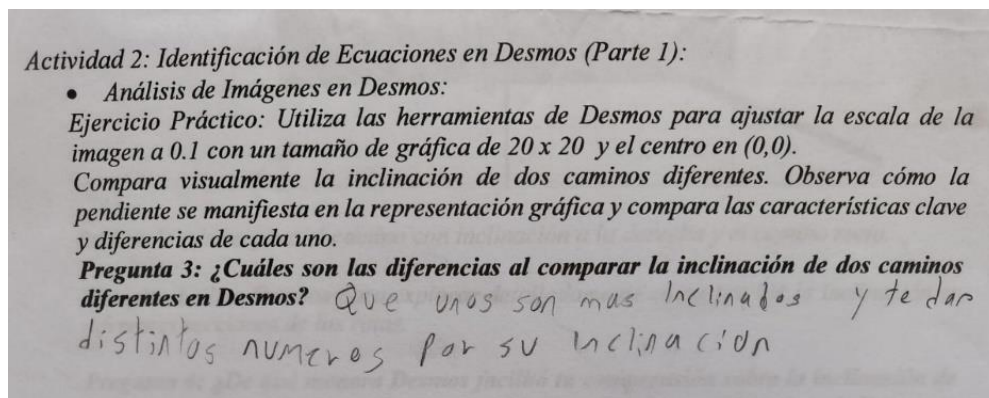 Actividad 2: Identificación de Ecuaciones en Desmos (Parte 1):
• Análisis de Imágenes en Desmos:
Ejercicio Práctico: Utiliza las herramientas de Desmos para ajustar la escala de la
imagen a 0.1 con un tamaño de gráfica de 20 x 20 y el centro en (0,0).
Compara visualmente la inclinación de dos caminos diferentes. Observa cómo la
pendiente se manifiesta en la representación gráfica y compara las características clave
y diferencias de cada uno.
Pregunta 3: ¿Cuáles son las diferencias al comparar la inclinación de dos caminos
diferentes en Desmos? Que unos son mas Inclinados y te dan
distintos numeros por su inclinación